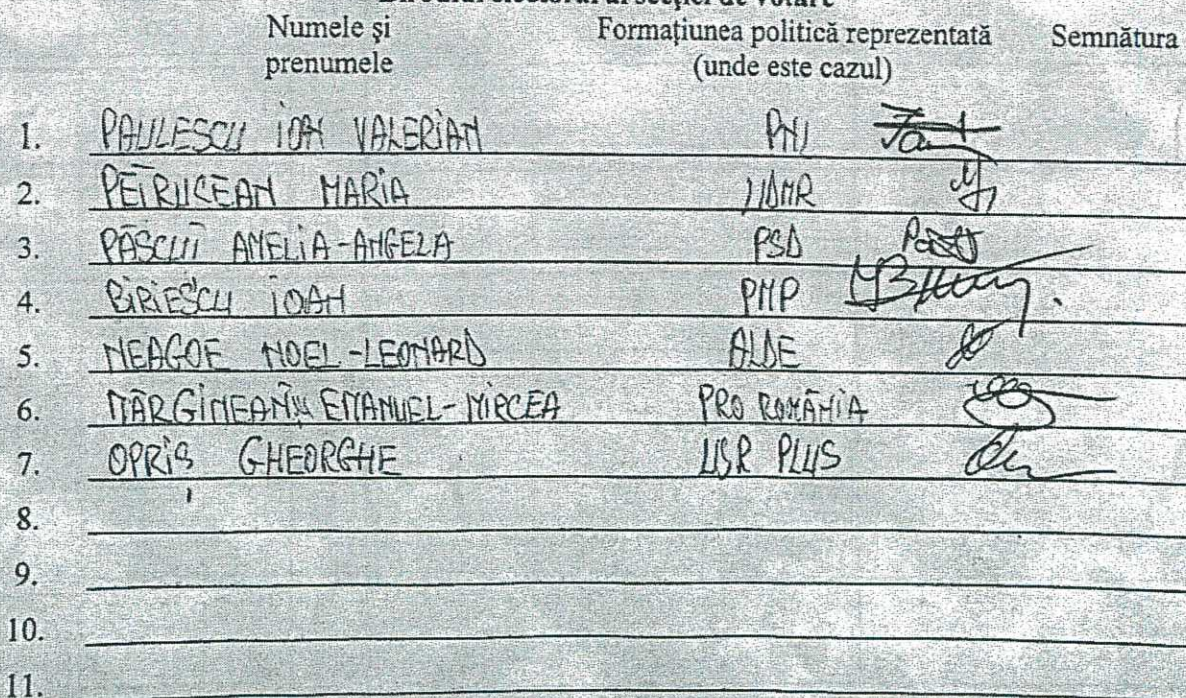 Biroului electoral al secției de votare
Numele și prenumele Formațiunea politică reprezentată (unde este cazul) Semnătura
1. PAULESCU IOAN VALERIAN PNL
2. PETRUCEAN MARIA UDMR
3. PĂSCUȚI AMELIA-ANGELA PSD
4. BIRIESCU IOAN PMP
5. NEAGOE NOEL-LEONARD ALDE
6. MĂRGINEANU EMANUEL-MIRCEA PRO ROMÂNIA
7. OPRIȘ GHEORGHE USR PLUS
8.
9.
10.
11.